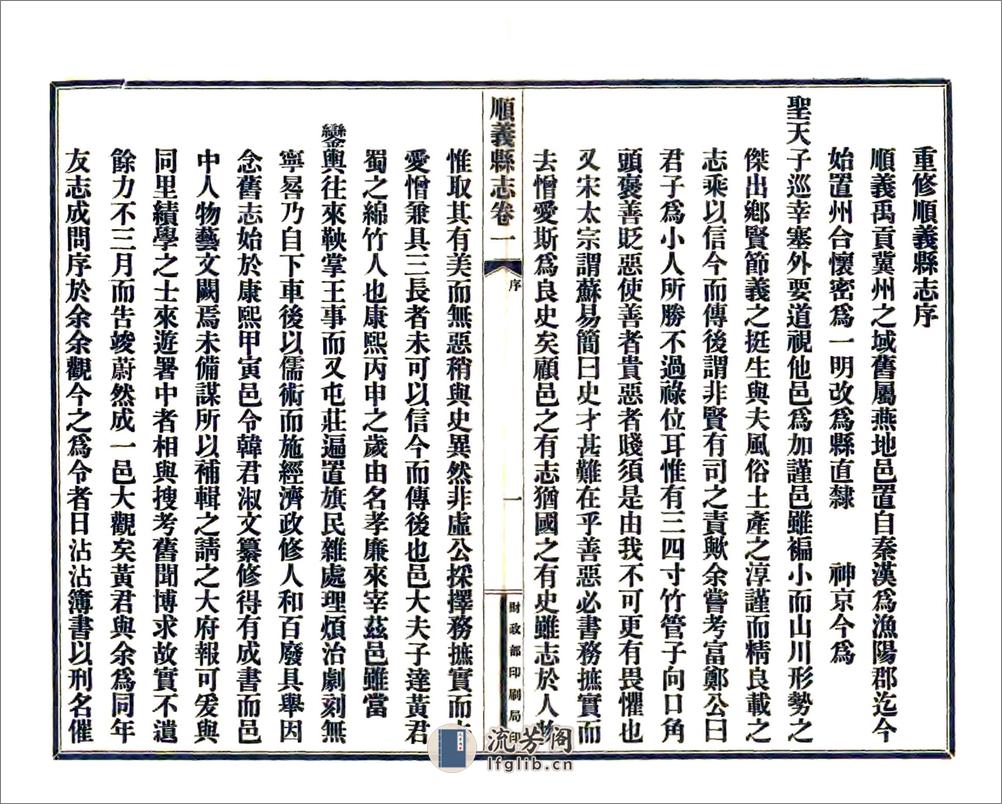 重修順義縣志序
順義禹貢冀州之域舊屬燕地邑置自秦漢爲漁陽郡迄今
始置州合懷密爲一明改爲縣直隸　神京今爲
聖天子巡幸塞外要道視他邑爲加謹邑雖褊小而山川形勢之
傑出鄉賢節義之挺生與夫風俗土產之淳謹而精良載之
志乘以信今而傳後謂非賢有司之責歟余嘗考富鄭公曰
君子爲小人所勝不過祿位耳惟有三四寸竹管子向口角
頭褒善貶惡使善者貴惡者賤須是由我不可更有畏懼也
又宋太宗謂蘇易簡曰史才甚難在乎善惡必書務摭實而
去憎愛斯爲良史矣顧邑之有志猶國之有史雖志於人物
順義縣志卷一
序
一
財政部印刷局印
惟取其有美而無惡稍與史異然非虛公採擇務摭實而
愛憎兼具三長者未可以信今而傳後也邑大夫子達黃君
蜀之綿竹人也康熙丙申之歲由名孝廉來宰茲邑雖當
鑾輿往來鞅掌王事而又屯莊遍置旗民雜處理煩治劇刻無
寧晷乃自下車後以儒術而施經濟政修人和百廢具舉因
念舊志始於康熙甲寅邑令韓君淑文纂修得有成書而邑
中人物藝文闕焉未備謀所以補輯之請之大府報可爰與
同里績學之士來遊署中者相與搜考舊聞博求故實不遺
餘力不三月而告竣蔚然成一邑大觀矣黃君與余爲同年
友志成問序於余余觀今之爲令者日沾沾簿書以刑名催
流芳閣
lfglib.cn